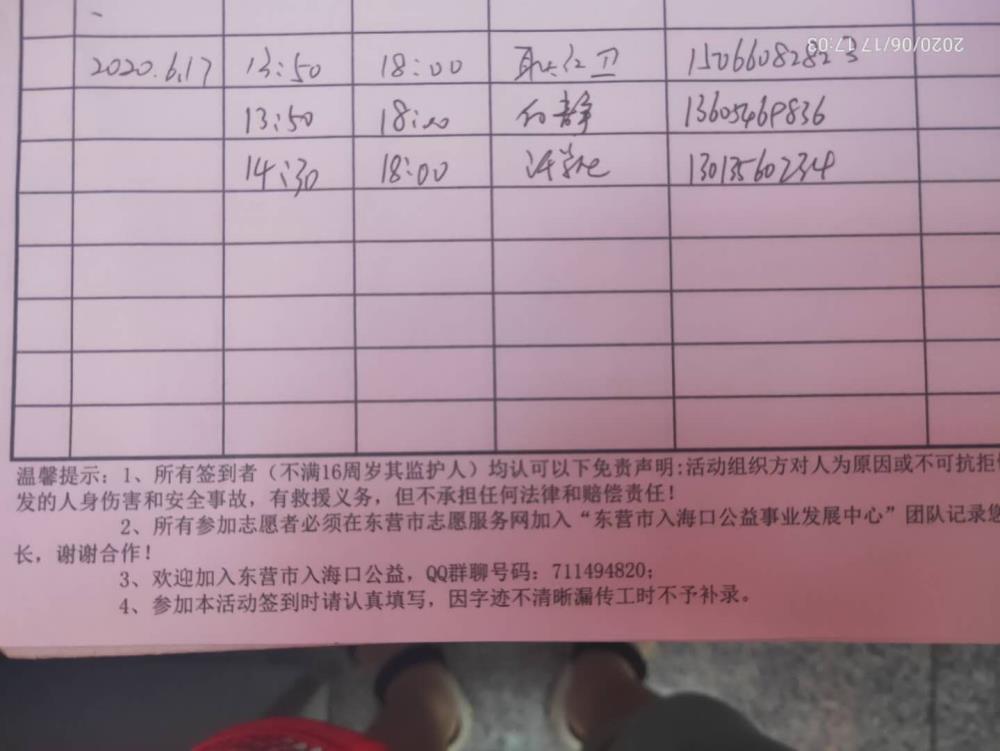 2020/06/17 17:03
2020.6.17 13:50 18:00 卫 15066082823
13:50 18:00 静 13605469836
14:30 18:00 13013560234
温馨提示：1、所有签到者（不满16周岁其监护人）均认可以下免责声明:活动组织方对人为原因或不可抗拒
发的人身伤害和安全事故，有救援义务，但不承担任何法律和赔偿责任！
2、所有参加志愿者必须在东营市志愿服务网加入“东营市入海口公益事业发展中心”团队记录您
长，谢谢合作！
3、欢迎加入东营市入海口公益，QQ群聊号码：711494820；
4、参加本活动签到时请认真填写，因字迹不清晰漏传工时不予补录。